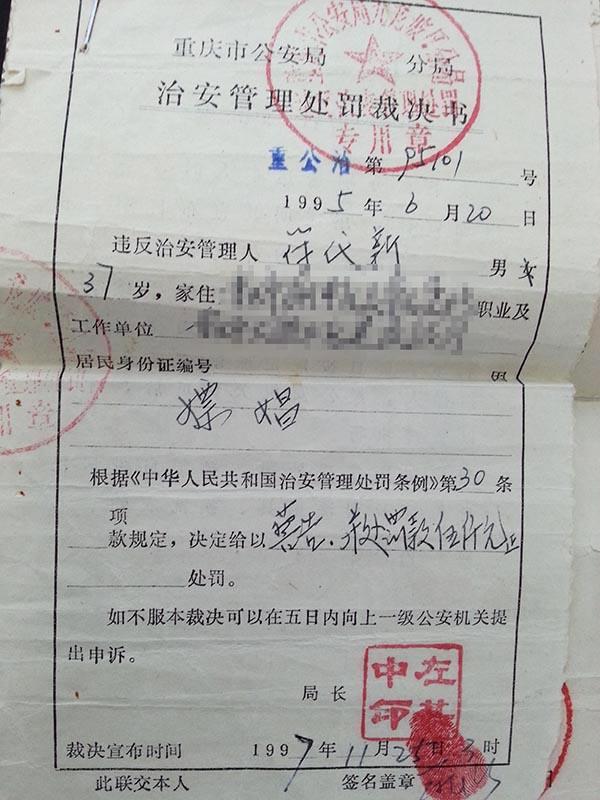 重庆市公安局 分局
治安管理处罚裁决书
专用章
重公治第95101号
1995年6月20日
违反治安管理人 符代新 男女
37岁,家住 职业及
工作单位
居民身份证编号
嫖娼
根据《中华人民共和国治安管理处罚条例》第30条
项
款规定,决定给以警告、并处罚款伍仟元正
处罚。
如不服本裁决可以在五日内向上一级公安机关提
出申诉。
局长
裁决宣布时间 1997年11月25日3时
此联交本人 签名盖章